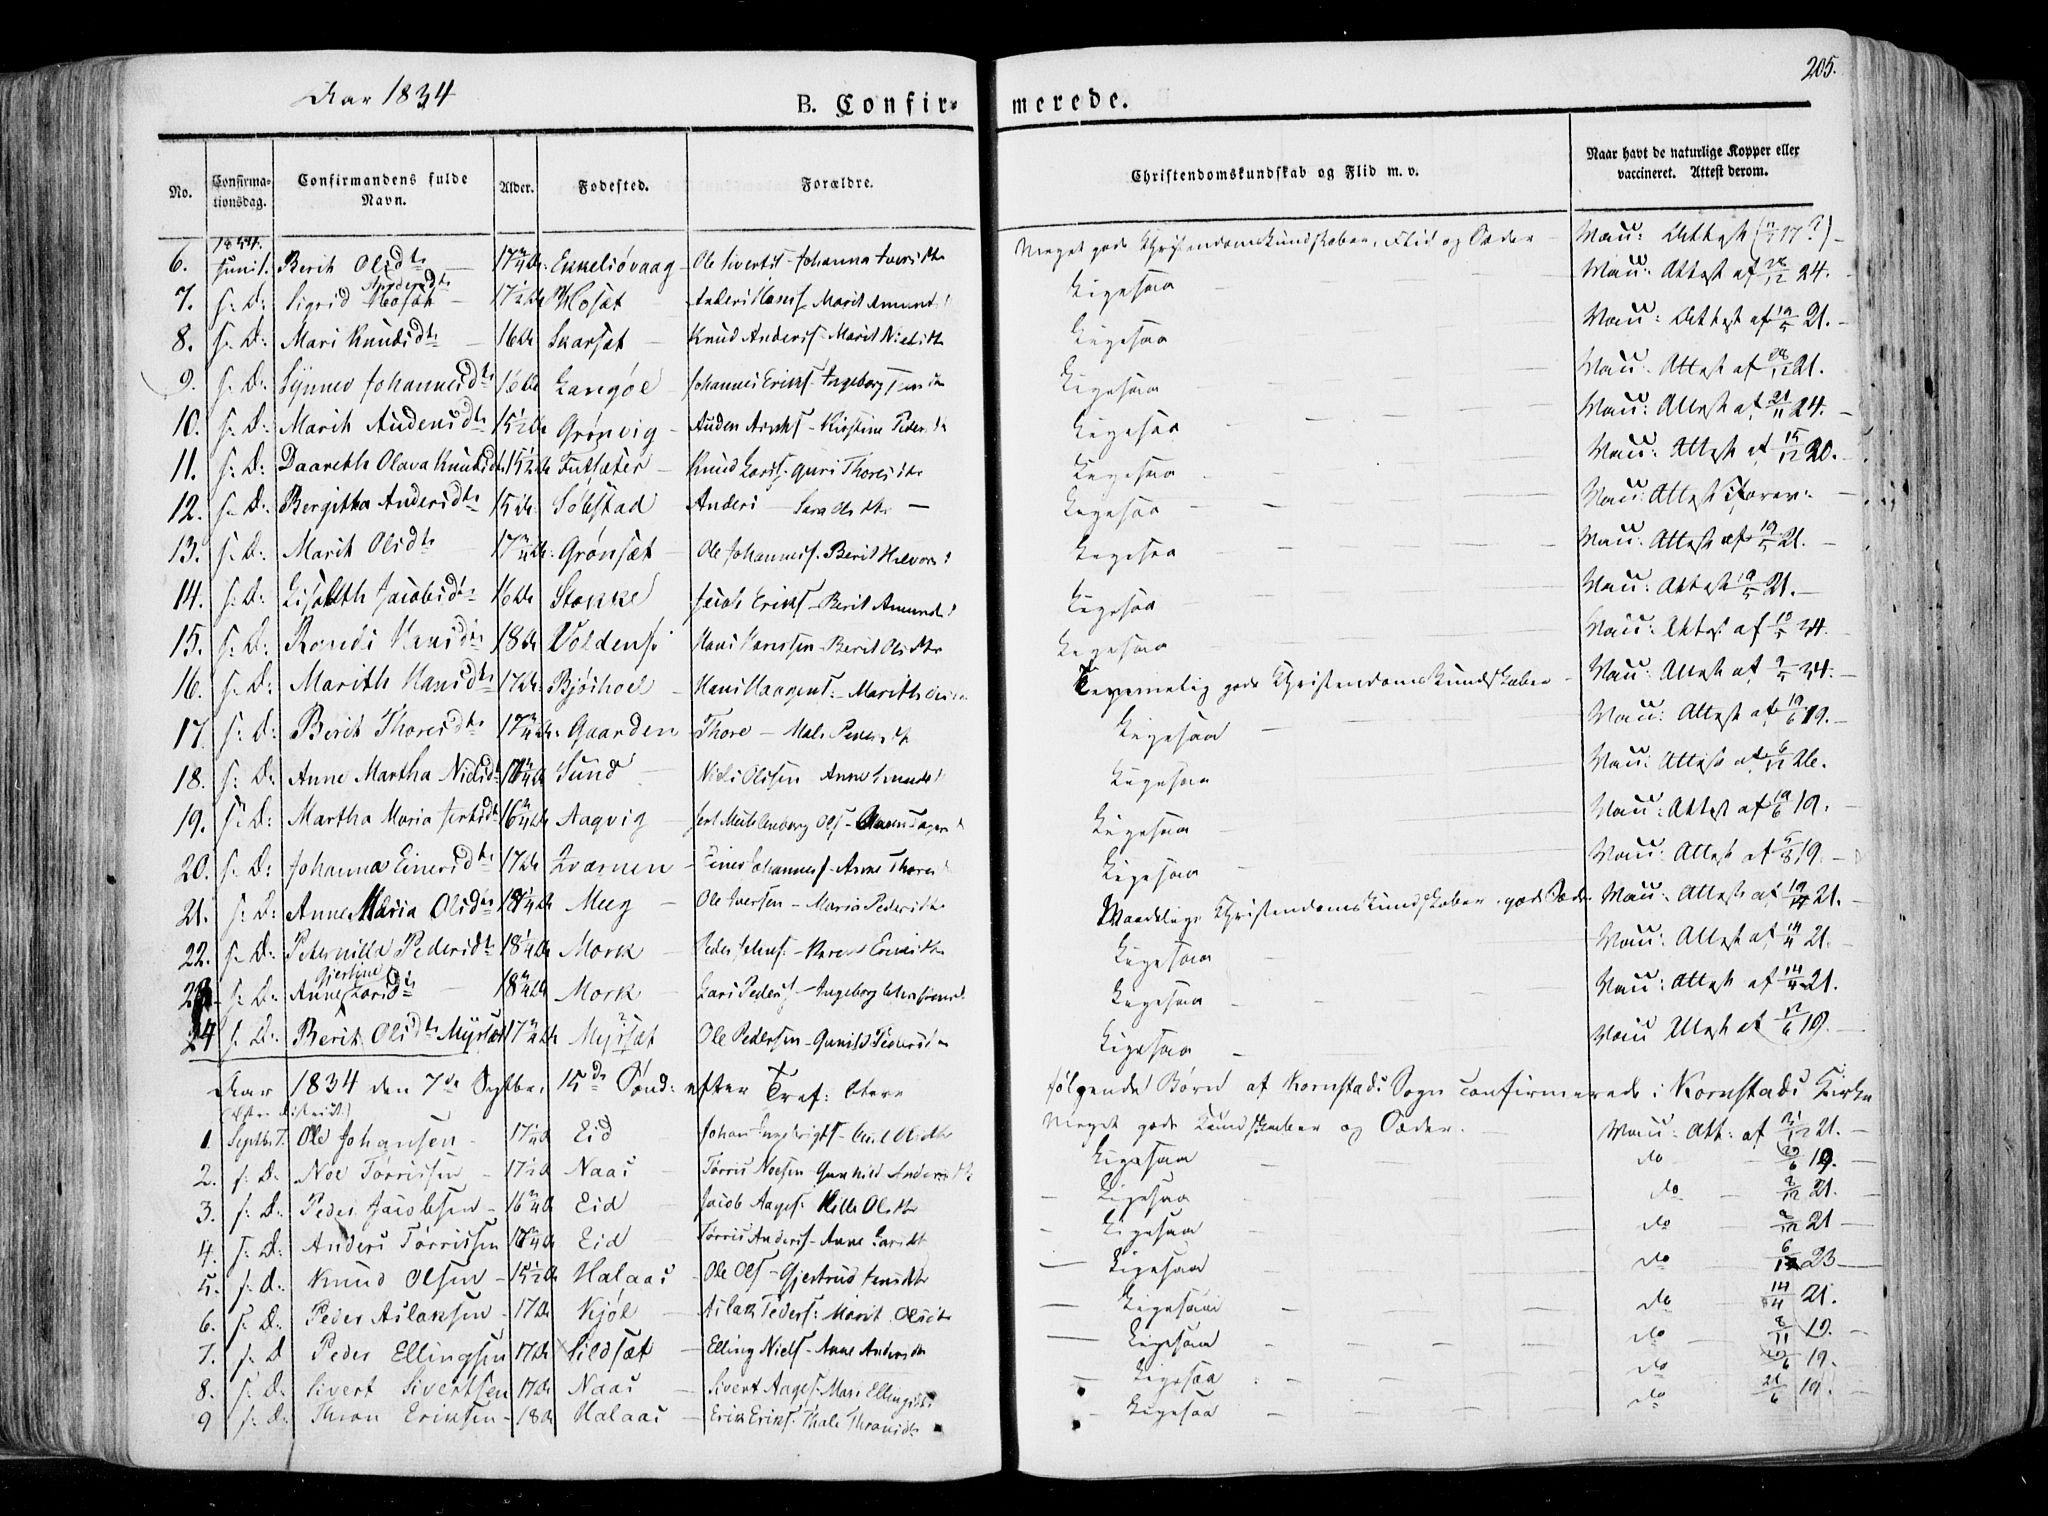 Aar 1834
B. Confir-
merede.
205.
No.
Confirma-
tionsdag.
Confirmandens fulde
Navn.
Alder.
Fødested.
Forældre.
Christendomskundskab og Flid m. v.
Naar havt de naturlige Kopper eller
vaccineret. Attest derom.
1834.
6. Juni 1. Berith Olsdtr 17 Ekkeliøvaag - Ole Sivertsen - Johanna Iversdtr Meget gode Christendomskundskaber, Flid og Sæder Vacc: Attest
7. s: D: Sigrid Andersdtr Mosæt 17 1/2 Mosæt Anders Hansen Marit Amundsd Ligesaa Vacc: Attest af 28/12 24.
8. s: D: Mari Knudsdtr 16 Skarsæt - Knud Anders - Marit Nielsdtr Ligesaa Vacc: Attest af 19/5 21.
9. s: D: Synnev Johannesdtr 16 Langøe Johannes Eriks - Ingeborg Ligesaa Vacc: Attest af 28/12 21.
10. s: D: Marith Audensdtr 15 1/2 Grønvig - Auden - Kirstine Pedersdtr Ligesaa Vacc: Attest af 21/11 24.
11. s: D: Daareth Olava Knudsdtr 15 1/2 Futsæter - Knud Lars - Guri Thoresdtr Ligesaa Vacc: Attest af 15/12 20.
12. s: D: Bergitha Andersdtr 15 Sølestad Anders - Sara Olsdtr - Ligesaa Vacc: Attest
13. s: D: Marit Olsdtr 17 Grønsæt - Ole Johannes - Berit Halvorsd Ligesaa Vacc: Attest af 19/5 21.
14. s: D: Lisabeth Jacobsdtr 16 Stokke Jacob Eriks - Berit Amundsd Ligesaa Vacc: Attest 19/5 21.
15. s: D: Randi Hansdtr 18 Volden Hans Hansen - Berit Olsdtr Ligesaa Vacc: Attest af 34.
16. s: D: Marith Hansdtr 17 Bjøshoel - Hans Haagens - Marith Temmelig gode Christendomskundskaber - Vacc: Attest af 34.
17. s: D: Berit Thoresdtr 17 Gaarden - Thore - Mali Pedersdtr Ligesaa Vacc: Attest af 19/6 19.
18. s: D: Anne Martha Nielsdtr Sund Niels Olssen Anne Ligesaa Vacc: Attest af 6/12 26.
19. s: D: Martha Maria 16 Aagvig - Muhlenborg Ols - Ligesaa Vacc: Attest af 19/6 19.
20. s: D: Johanna Einersdtr 17 Qværnen - Einer Johannes - Anne Thoresd Ligesaa Vacc: Attest af 5/8 19.
21. s: D: Anne Maria Olsdtr Meeg - Ole Iversen - Maria Pedersdtr Maadelige Christendomskundskaber, gode Sæder Vacc: Attest af 21.
22. s: D: Peternille Pedersdtr 18 1/4 Mork - Peder Johns - Karen Eriksdtr Ligesaa Vacc: Attest af 14/4 21.
23 s: D: Anne Gjertine Larsdtr 18 Mork - Lars Peders - Ingeborg Christensd Ligesaa Vacc: Attest af 14/4 21.
24 s: D: Berit Olsdtr Myrsæt 17 Myrsæt Ole Pedersen - Gunild Pedersdtr Ligesaa Vacc Attest af 12/6 19.
Aar 1834 den 7de Septbr 15de Sønd: efter Tref: blevne følgende Børn af Kornstads Sogn confirmerede i Kornstads Kirke
1 Septbr 7. Ole Johansen - 17 1/4 Eid Johan Ingebrigts - Meget gode Kundskaber og Sæder. - Vacc: Att: af 21.
2. s: D. Noe Tørrissen - 17 1/2 Naas - Tørris Noesen - Gunhild Andersdtr Ligesaa do 19.
3. s: D. Peder Jacobsen - 16 Eid - Jacob Aages - Olsdtr Ligesaa do 21.
4. s: D. Anders Tørrissen Eid - Tørris Anders - Anne Larsdtr Ligesaa do 21
5. s: D. Knud Olsen - 15 1/2 Halaas - Ole Ols - Gjertrud Jensdtr Ligesaa do 6/12 23
6. s: D: Peder Aslaksen - 17 Kjøl - Aslak Peders: Marit Olsdtr Ligesaa do 14/4 21.
7. s: D Peder Ellingsen 17 Sildsæt - Elling Niels - Anne Andersdtr Ligesaa do 19.
8. s: D: Sivert Sivertsen 17 Naas - Sivert Aages - Mari Ellingsdtr Ligesaa do 19.
9 s: D: Thron Eriksen - 18 Halaas - Erik Eriks - Thale Thronsdtr Ligesaa do 21/6 19.